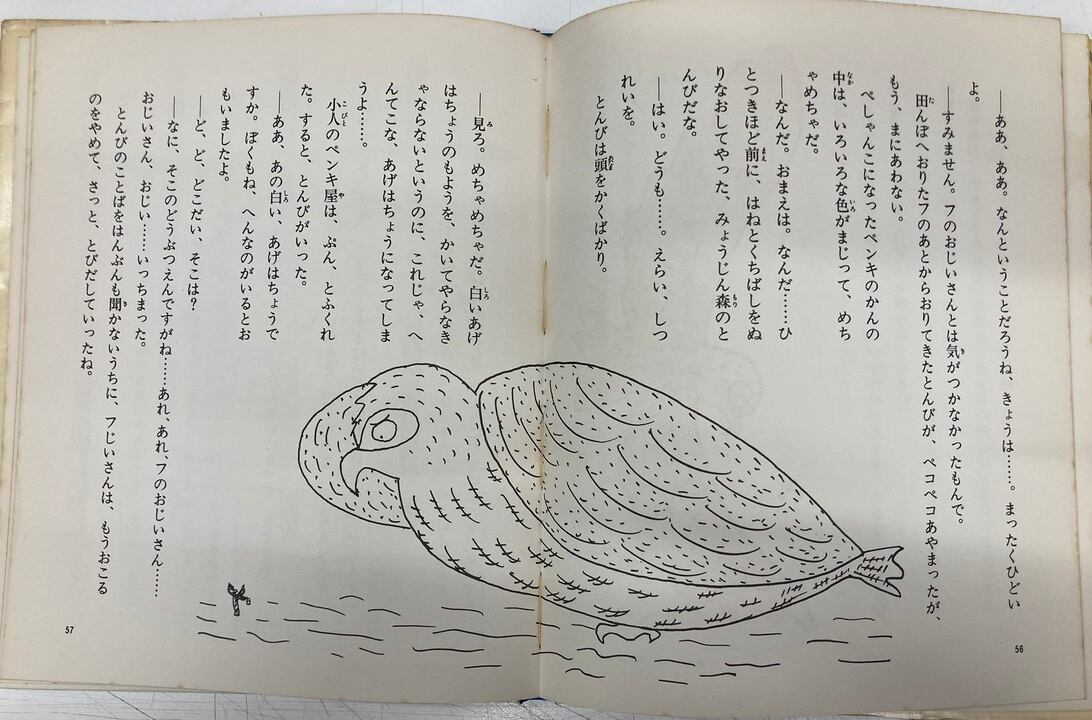 ――ああ、ああ。なんということだろうね、きょうは……。まったくひどい
よ。
――すみません。フのおじいさんとは気がつかなかったもんで。
田んぼへおりたフのあとからおりてきたとんびが、ペコペコあやまったが、
もう、まにあわない。
ぺしゃんこになったペンキのかんの
中は、いろいろな色がまじって、めち
ゃめちゃだ。
――なんだ。おまえは。なんだ……ひ
とつきほど前に、はねとくちばしをぬ
りなおしてやった、みょうじん森のと
んびだな。
――はい。どうも……。えらい、しつ
れいを。
とんびは頭をかくばかり。
56
――見ろ。めちゃめちゃだ。白いあげ
はちょうのもようを、かいてやらなき
ゃならないというのに、これじゃ、へ
んてこな、あげはちょうになってしま
うよ……。
小人のペンキ屋は、ぷん、とふくれ
た。すると、とんびがいった。
――ああ、あの白い、あげはちょうで
すか。ぼくもね、へんなのがいるとお
もいましたよ。
――ど、ど、どこだい、そこは?
――なに、そこのどうぶつえんですがね……あれ、あれ、フのおじいさん……
おじいさん、おじい……いっちまった。
とんびのことばをはんぶんも聞かないうちに、フじいさんは、もうおこる
のをやめて、さっと、とびだしていったね。
57